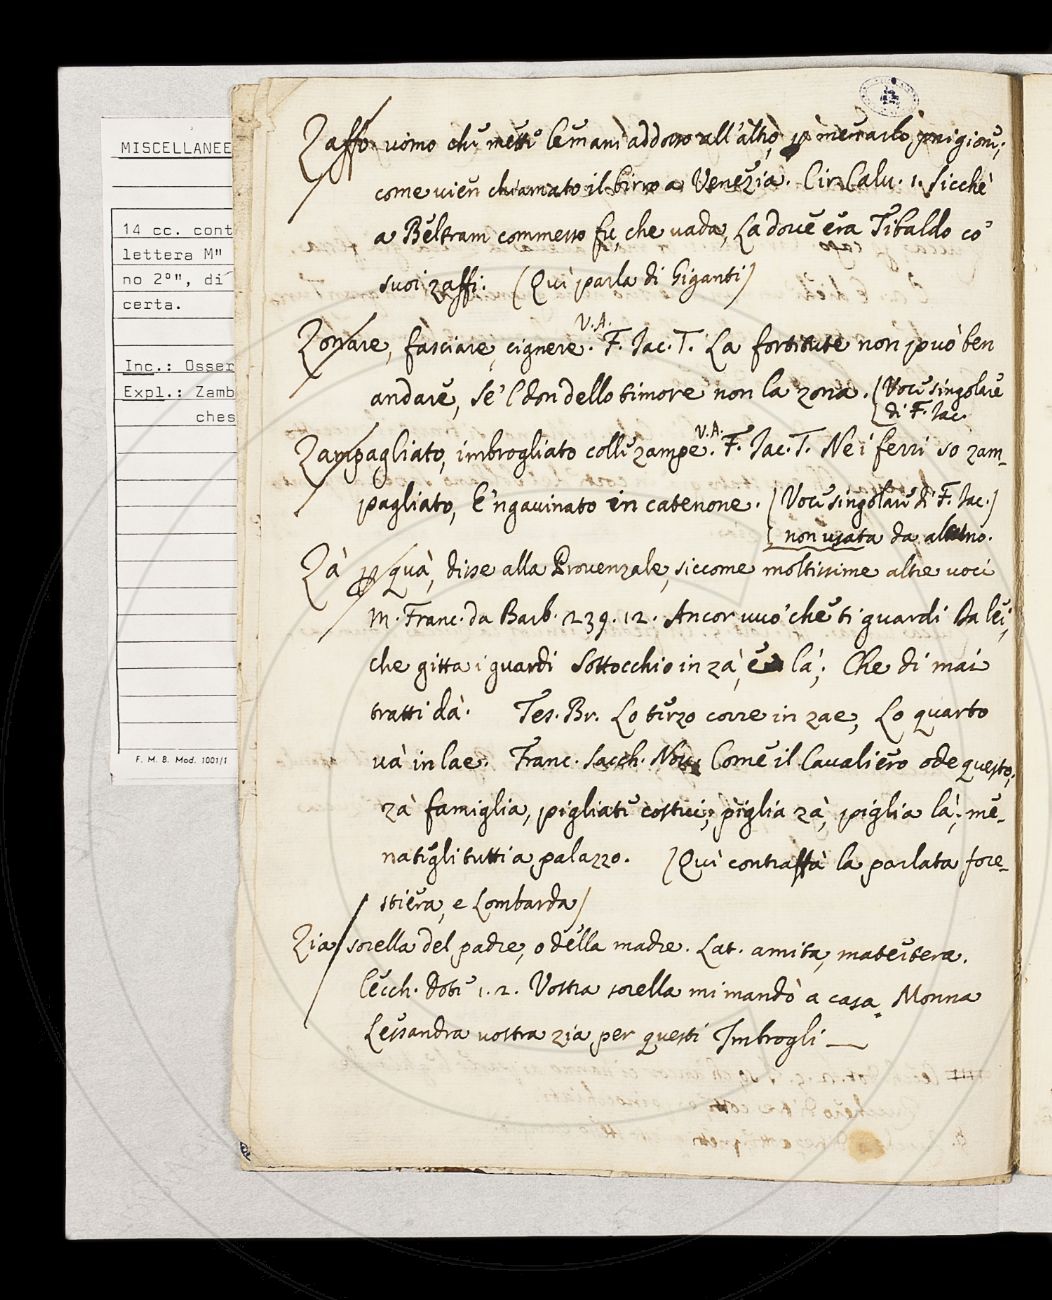 MISCELLANEE
14 cc. cont
lettera M"
no 2°", di
certa.
Inc.: Osser
Expl.: Zamb
ches
F. M. B. Mod. 1001/1
Zaffo uomo che mette le mani addosso all'altro, p menarlo prigione;
come vien chiamato il birro a Venezia. Cir. Calv. 1. Sicchè
a Beltram commesso fu, che vada, Là dove era Tibaldo co'
suoi zaffi. (Quì parla di Giganti)
V. A.
Zonare, fasciare, cignere. F. Iac. T. La fortitute non può ben
andare, Se 'l don dello timore non la zona. (Voce singolare
di F. Iac.
V. A.
Zampagliato, imbrogliato colle zampe. F. Iac. T. Ne i ferri so zam-
pagliato, E 'ngavinato in catenone. (Voce singolare di F. Iac.)
non usata da alcuno.
Zà p quà, disse alla Provenzale, siccome moltissime altre voci
M. Franc. da Barb. 239. 12. Ancor vuo' che ti guardi Da lei,
che gitta i guardi Sottocchio in zà, e là; Che di mai
tratti dà. Tes. Br. Lo terzo corre in zae, Lo quarto
và in lae. Franc. Sacch. Nov. Come il Cavaliero ode questo;
zà famiglia, pigliate costui; piglia zà, piglia là; me-
nategli tutti a palazzo. (Quì contraffà la parlata fore-
stiera, e Lombarda)
Zia sorella del padre, o della madre. Lat. amita, matertera.
Cecch. Dote 1. 2. Vostra sorella mi mandò a casa Monna
Lessandra vostra zia per questi Imbrogli —